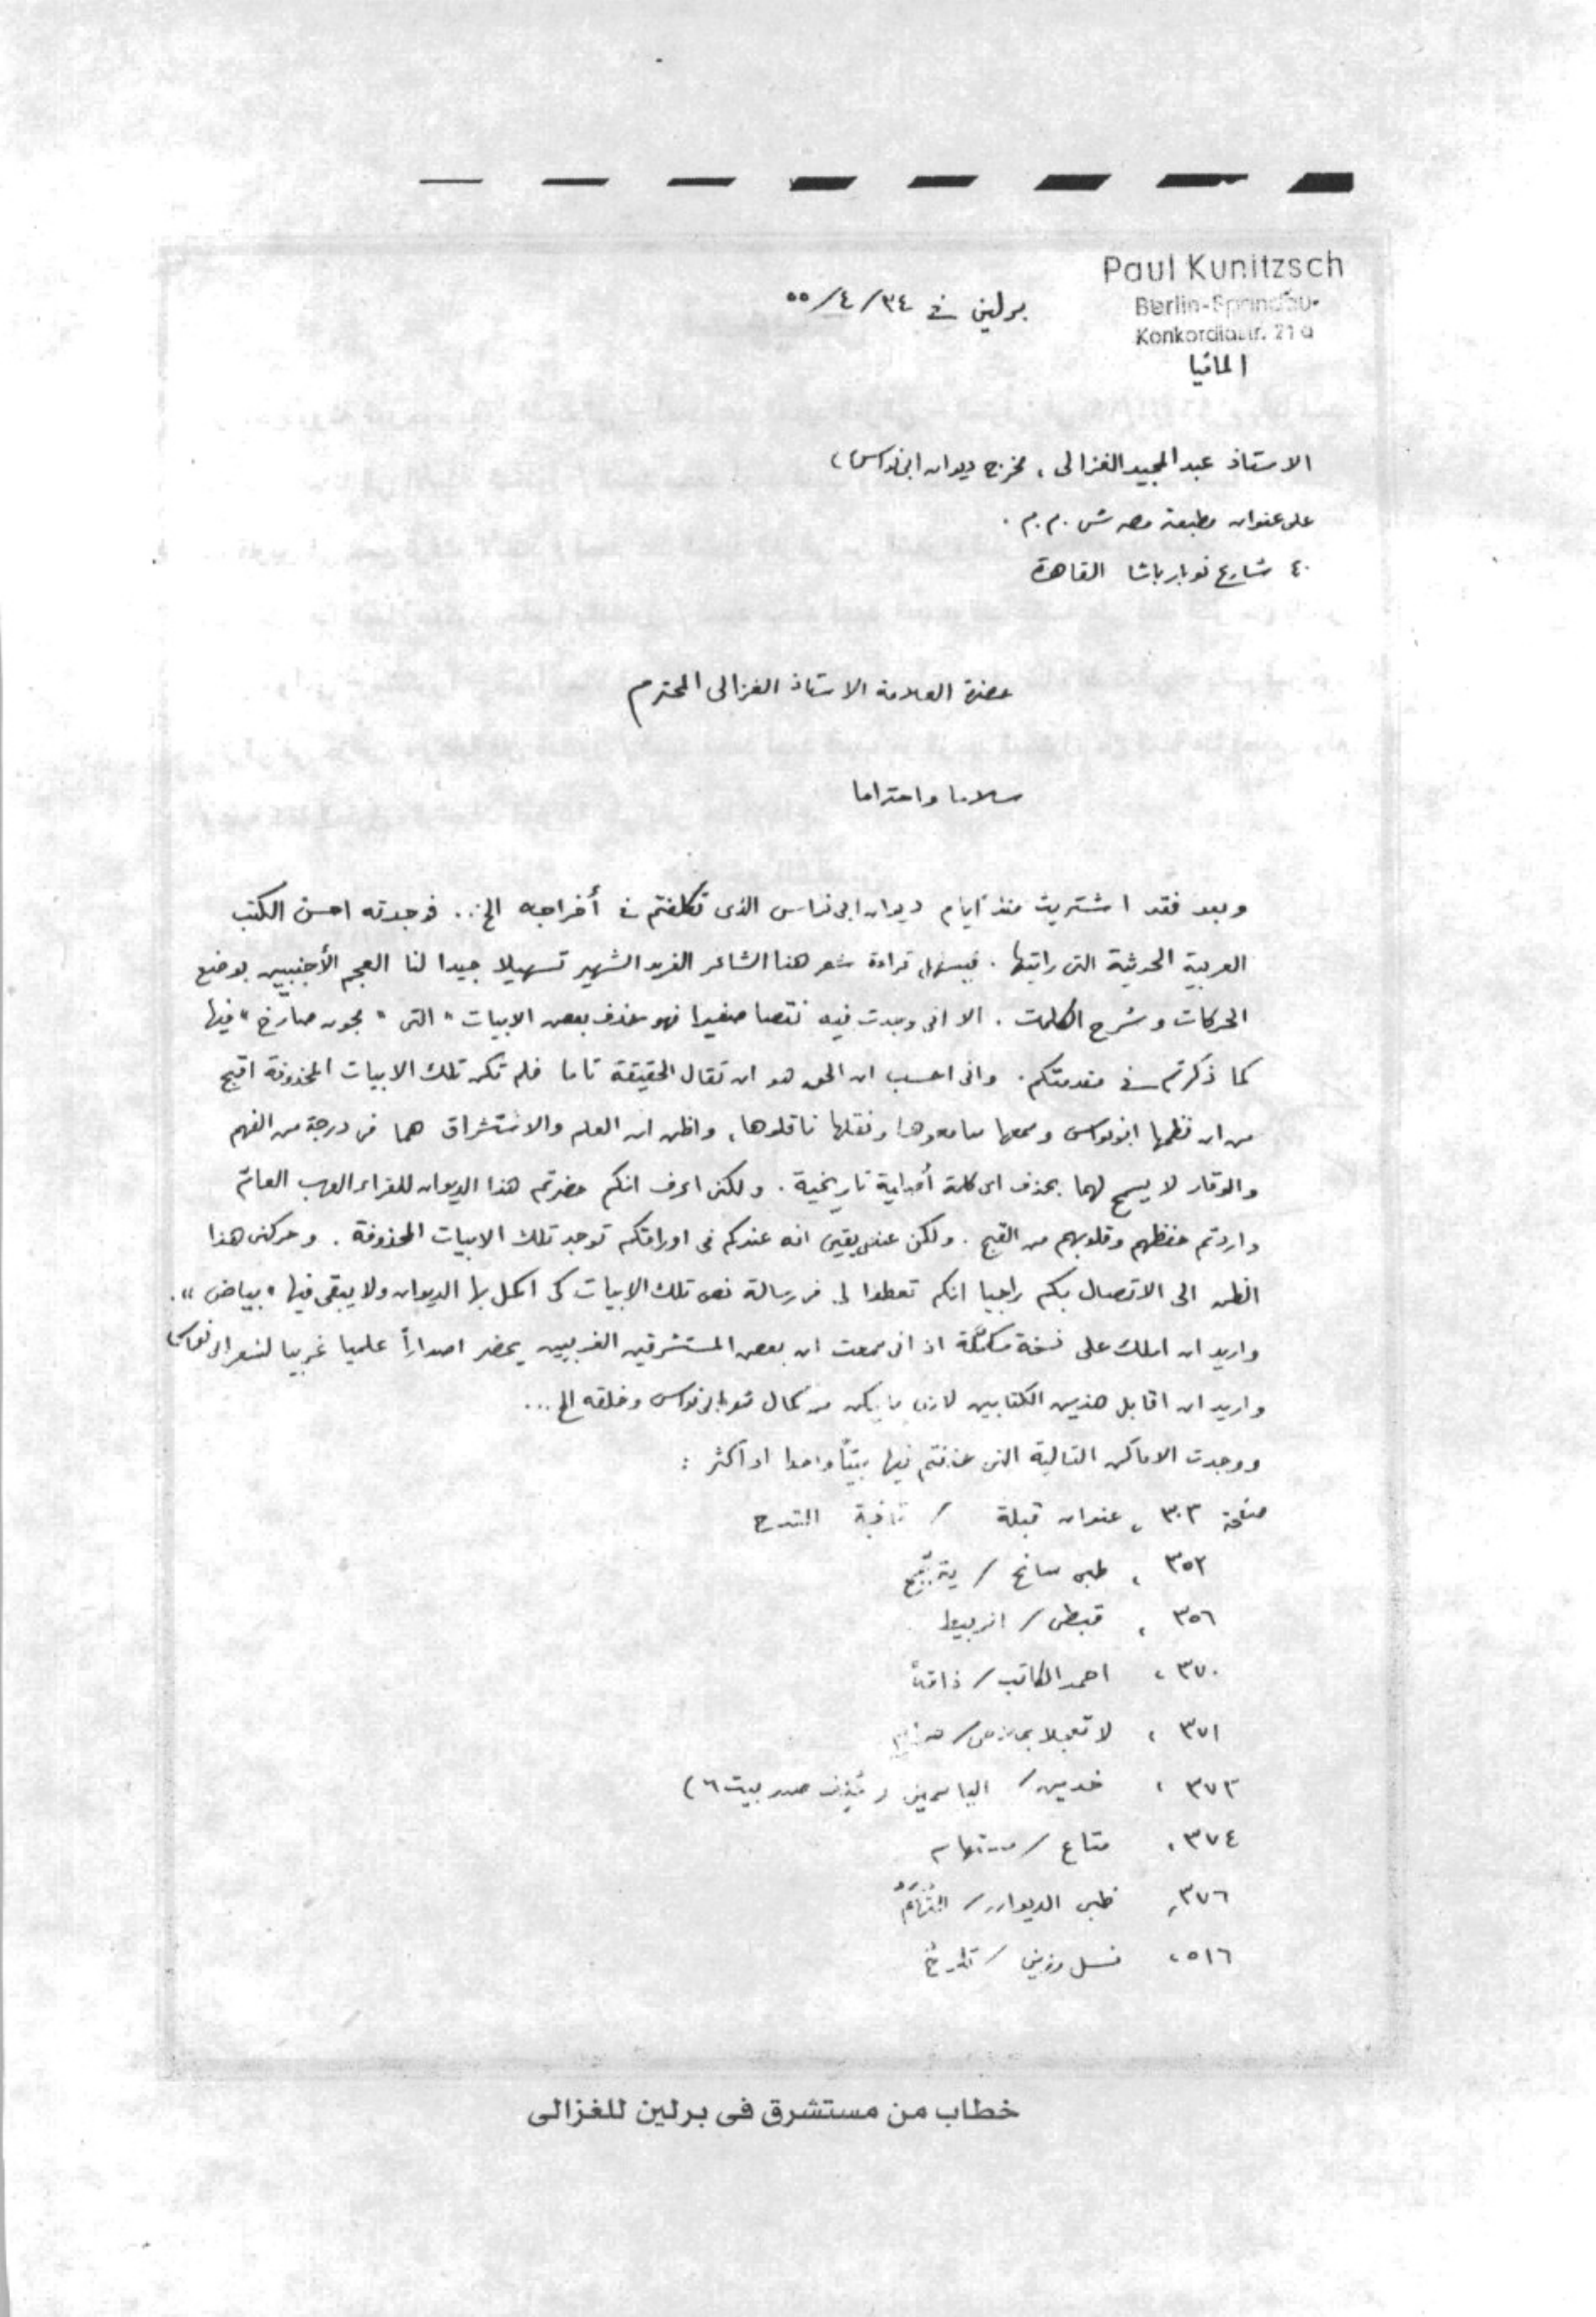 Paul Kunitzsch
Berlin-Spandau-
Konkordiastr. 21 a
المانيا
برلين في ٣٤/٤/٥٥
الاستاذ عبد المجيد الغزالى، مخرج ديوان ابى نواس،
على عنوان مطبعة مصر ش.م.م.
٤٠ شارع نوبار باشا القاهرة
حضرة العلامة الاستاذ الغزالى المحترم
سلاما واحتراما
وبعد فقد اشتريت منذ أيام ديوان ابى نواس الذى تكلفتم في أخراجه الخ... فوجدته احسن الكتب
العربية الحديثة التى رايتها. فيسهل قراءة شعر هذا الشاعر الفريد الشهير تسهيلا جيدا لنا العجم الأجنبيين بوضع
الحركات وشرح الكلمات. الا انى وجدت فيه نقصا صغيرا فهو حذف بعض الابيات "التى "مجون صارخ" فيها
كما ذكرتم في مقدمتكم. وانى احسب ان الحق هو ان تقال الحقيقة تاما فلم تكن تلك الابيات المحذوفة اقبح
من ان نظمها ابو نواس وسمعها سامعوها ونقلها ناقلوها، واظن ان العلم والاستشراق هما فى درجة من الفهم
والوقار لا يسمح لهما بحذف اى كلمة تاريخية. ولكن اعرف انكم حضرتم هذا الديوان للقراء العرب العام
واردتم حفظهم وقلوبهم من القبح. ولكن عندى يقين انه عندكم فى اوراقكم توجد تلك الابيات المحذوفة. وحركنى هذا
الظن الى الاتصال بكم راجيا انكم تعطوا لى فى رسالة نص تلك الابيات كى اكمل بها الديوان ولا يبقى فيها "بياض".
واريد ان املك على نسخة مكملة اذ انى سمعت ان بعض المستشرقين الغربيين يحضر اصداراً علميا غربيا لشعر ابى نواس
واريد ان اقابل هذين الكتابين لارى ما يكن من كمال شعر ابى نواس وخلقه الخ...
ووجدت الاماكن التالية التى حذفتم فيها بيتاً واحدا او أكثر :
صفحة ٣٠٣، عنوان قبلة / قافية التدرج
٣٥٢، ظبى سانح /
٣٥٦، قبطى /
٣٧٠، احمد الكاتب /
٣٧١، لا تعجلا
٣٧٣، خدين / الياسمين صدر بيت ٦)
٣٧٤، متاع /
٣٧٦، ظبى الديوان /
٥١٦، نسل رزين /
خطاب من مستشرق فى برلين للغزالى